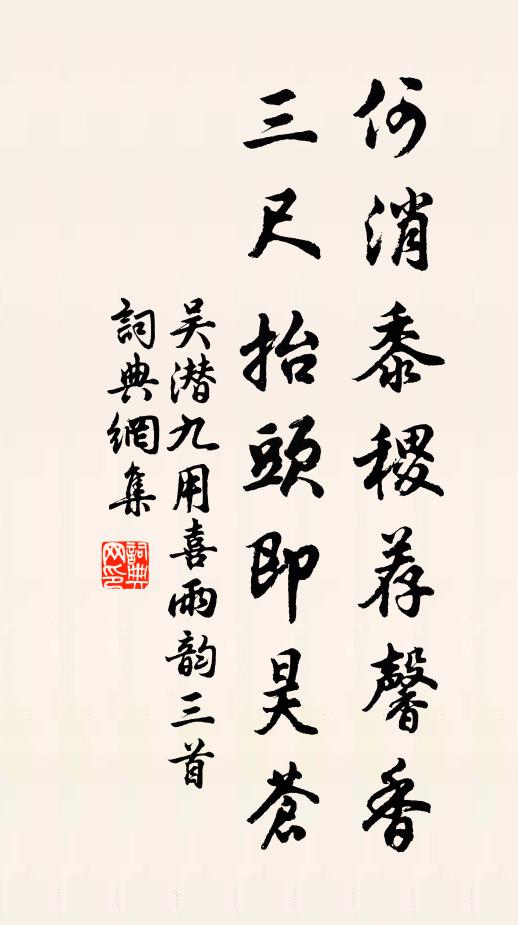 何消黍稷荐馨香
三尺抬頭即昊蒼
吴潜九用喜雨韵三首
詞典網集
詞典
网印